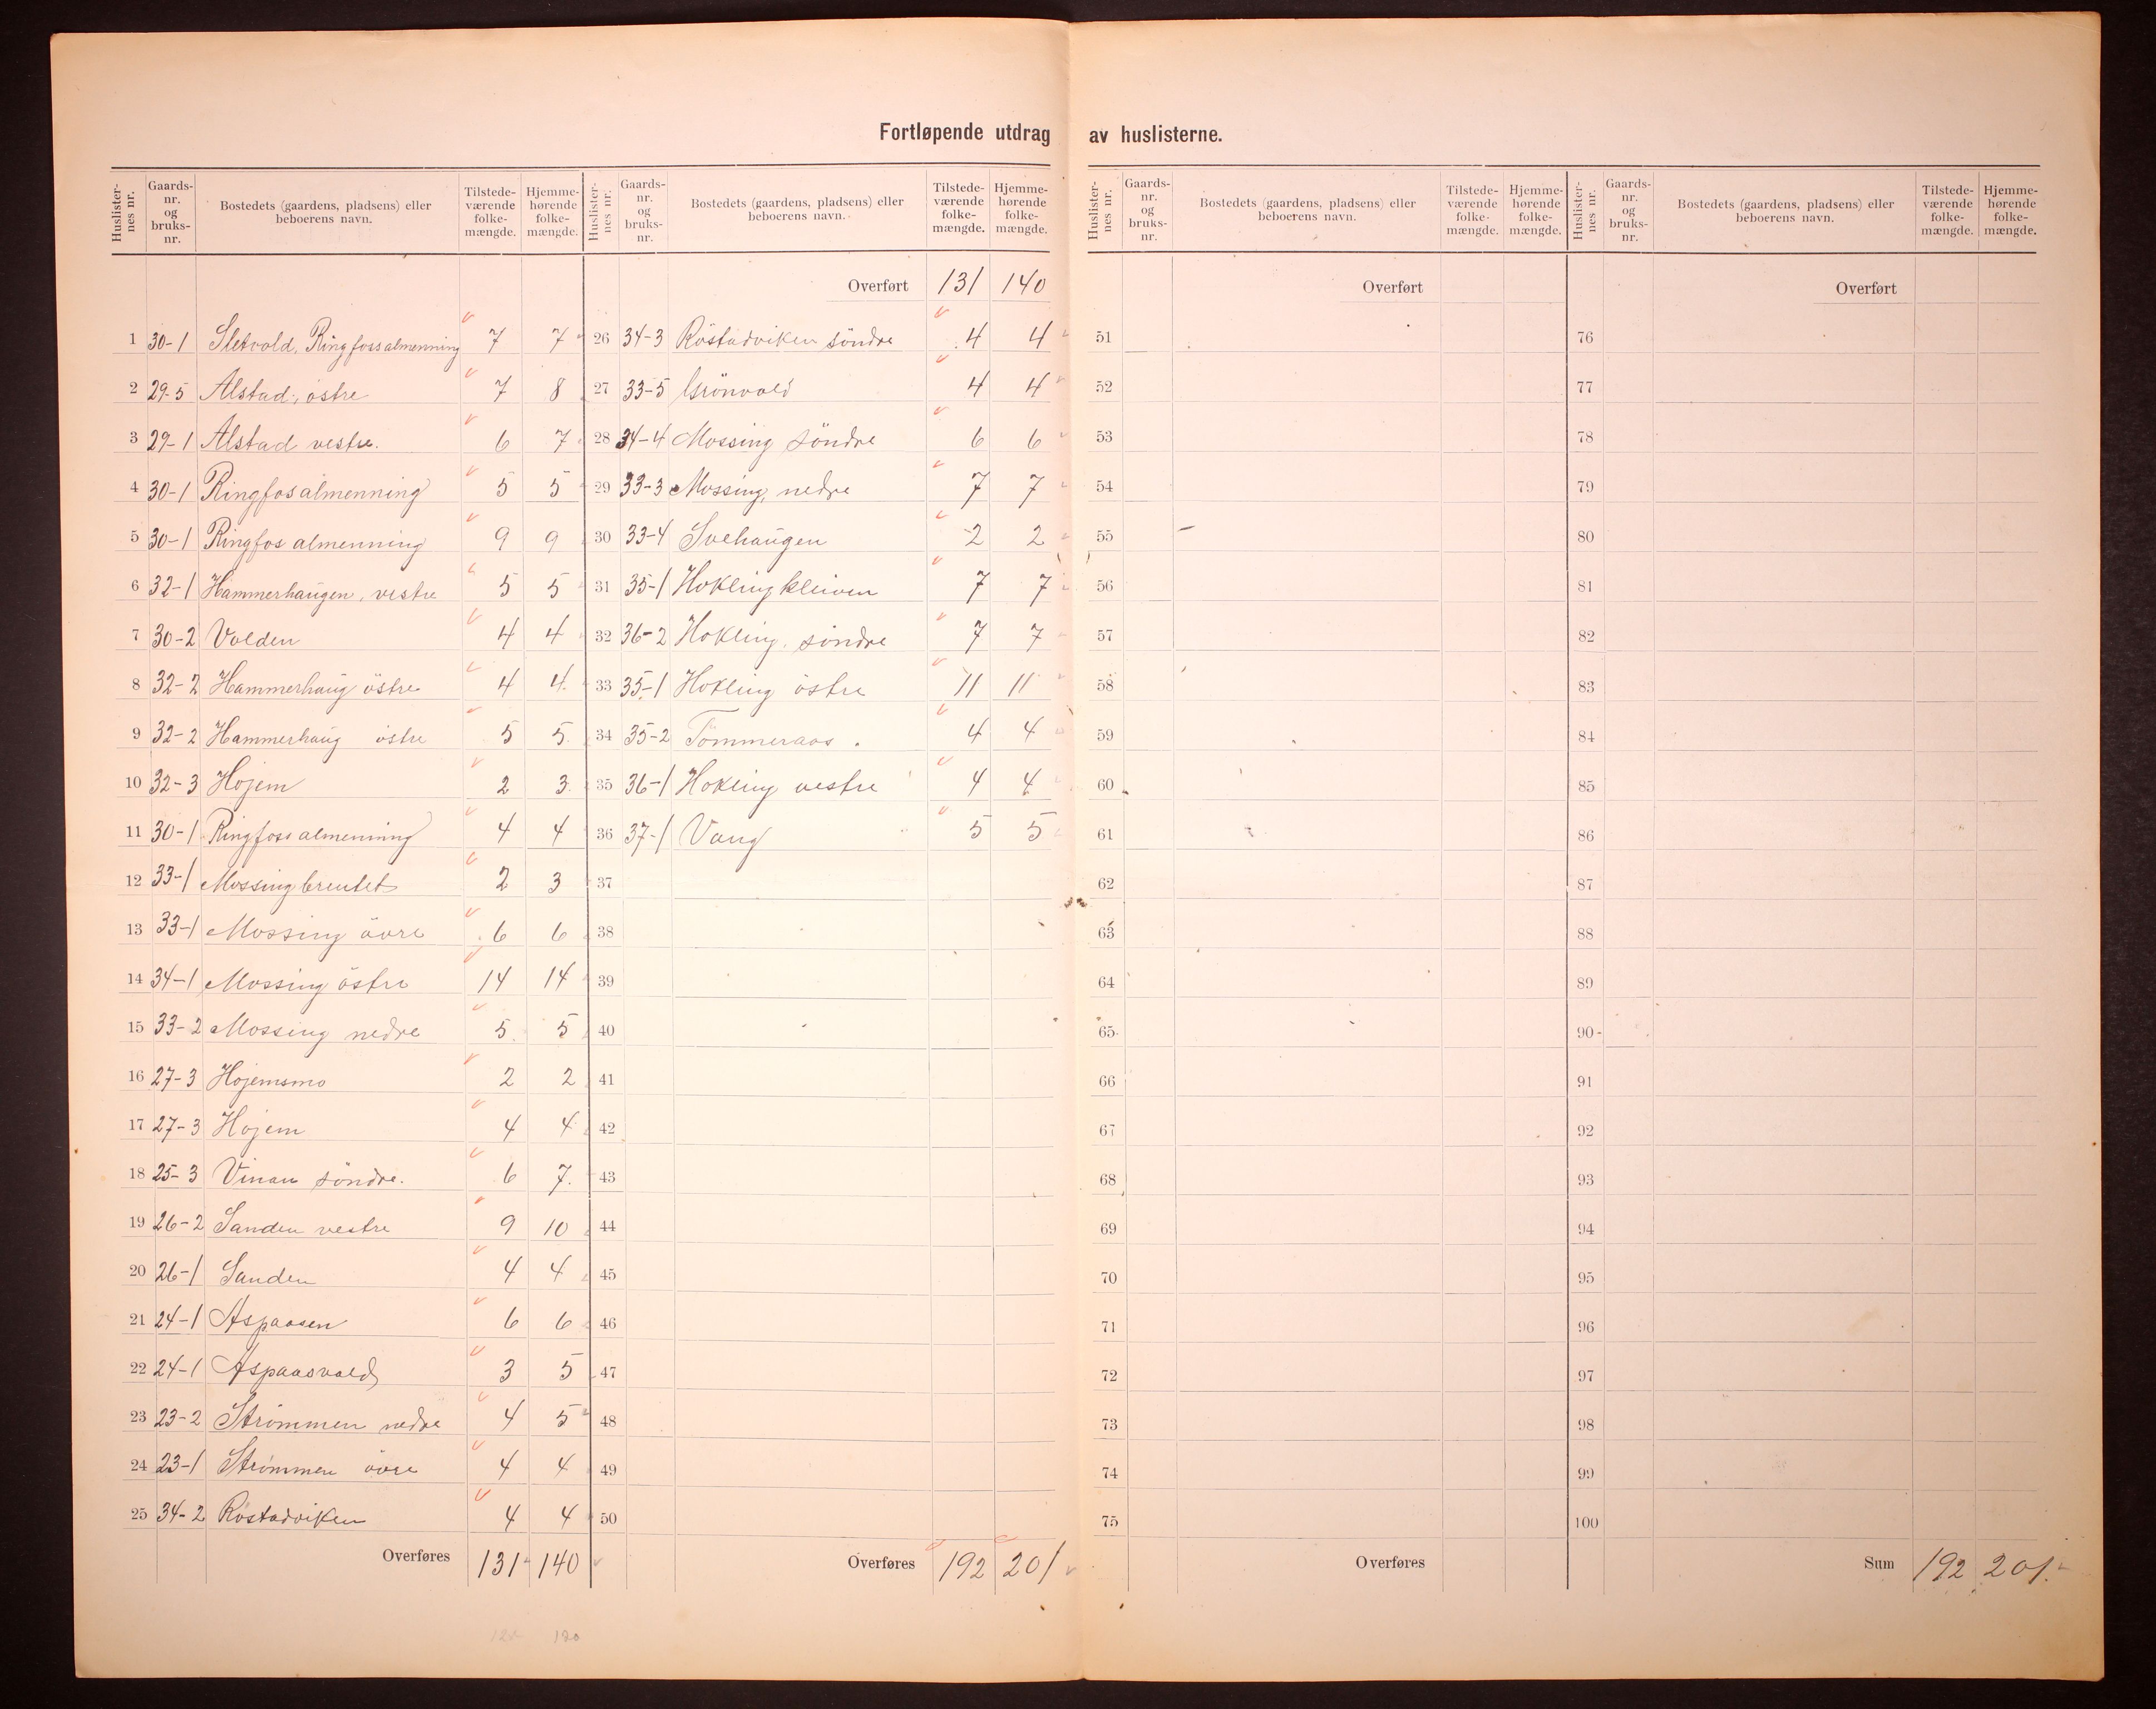 Fortløpende utdrag av huslisterne.
Huslisternes nr. Gaards-nr. og bruks-nr. Bostedets (gaardens, pladsens) eller beboerens navn. Tilstedeværende folkemængde. Hjemmehørende folkemængde.
1 30-1 Sletvold, Ringfossalmenning 7 7
2 29-5 Alstad, östre 7 8
3 29-1 Alstad vestre. 6 7
4 30-1 Ringfosalmenning 5 5
5 30-1 Ringfos almenning 9 9
6 32-1 Hammerhaugen, vestre 5 5
7 30-2 Volden 4 4
8 32-2 Hammerhaug östre 4 4
9 32-2 Hammerhaug östre 5 5
10 32-3 Hojem 2 3
11 30-1 Ringfossalmenning 4 4
12 33-1 Mossingbrentet 2 3
13 33-1 Mossing övre 6 6
14 34-1 Mossing östre 14 14
15 33-2 Mossing nedre 5 5
16 27-3 Hojemsmo 2 2
17 27-3 Hojem 4 4
18 25-3 Vinan söndre. 6 7
19 26-2 Sanden vestre 9 10
20 26-1 Sanden 4 4
21 24-1 Aspaasen 6 6
22 24-1 Aspaasvold 3 5
23 23-2 Strömmen nedre 4 5
24 23-1 Strömmen övre 4 4
25 34-2 Röstadviken 4 4
Overføres 131 140
Huslisternes nr. Gaards-nr. og bruks-nr. Bostedets (gaardens, pladsens) eller beboerens navn. Tilstedeværende folkemængde. Hjemmehørende folkemængde.
Overført 131 140
26 34-3 Röstadviken söndre 4 4
27 33-5 Grönvold 4 4
28 34-4 Mossing söndre 6 6
29 33-3 Mossing, nedre 7 7
30 33-4 Svehaugen 2 2
31 35-1 Hoklingkleiven 7 7
32 36-2 Hokling, söndre 7 7
33 35-1 Hokling östre 11 11
34 35-2 Tömmeraas 4 4
35 36-1 Hokling vestre 4 4
36 37-1 Vang 5 5
37
38
39
40
41
42
43
44
45
46
47
48
49
50
Overføres 192 201
Huslisternes nr. Gaards-nr. og bruks-nr. Bostedets (gaardens, pladsens) eller beboerens navn. Tilstedeværende folkemængde. Hjemmehørende folkemængde.
Overført
51
52
53
54
55
56
57
58
59
60
61
62
63
64
65
66
67
68
69
70
71
72
73
74
75
Overføres
Huslisternes nr. Gaards-nr. og bruks-nr. Bostedets (gaardens, pladsens) eller beboerens navn. Tilstedeværende folkemængde. Hjemmehørende folkemængde.
Overført
76
77
78
79
80
81
82
83
84
85
86
87
88
89
90
91
92
93
94
95
96
97
98
99
100
Sum 192 201